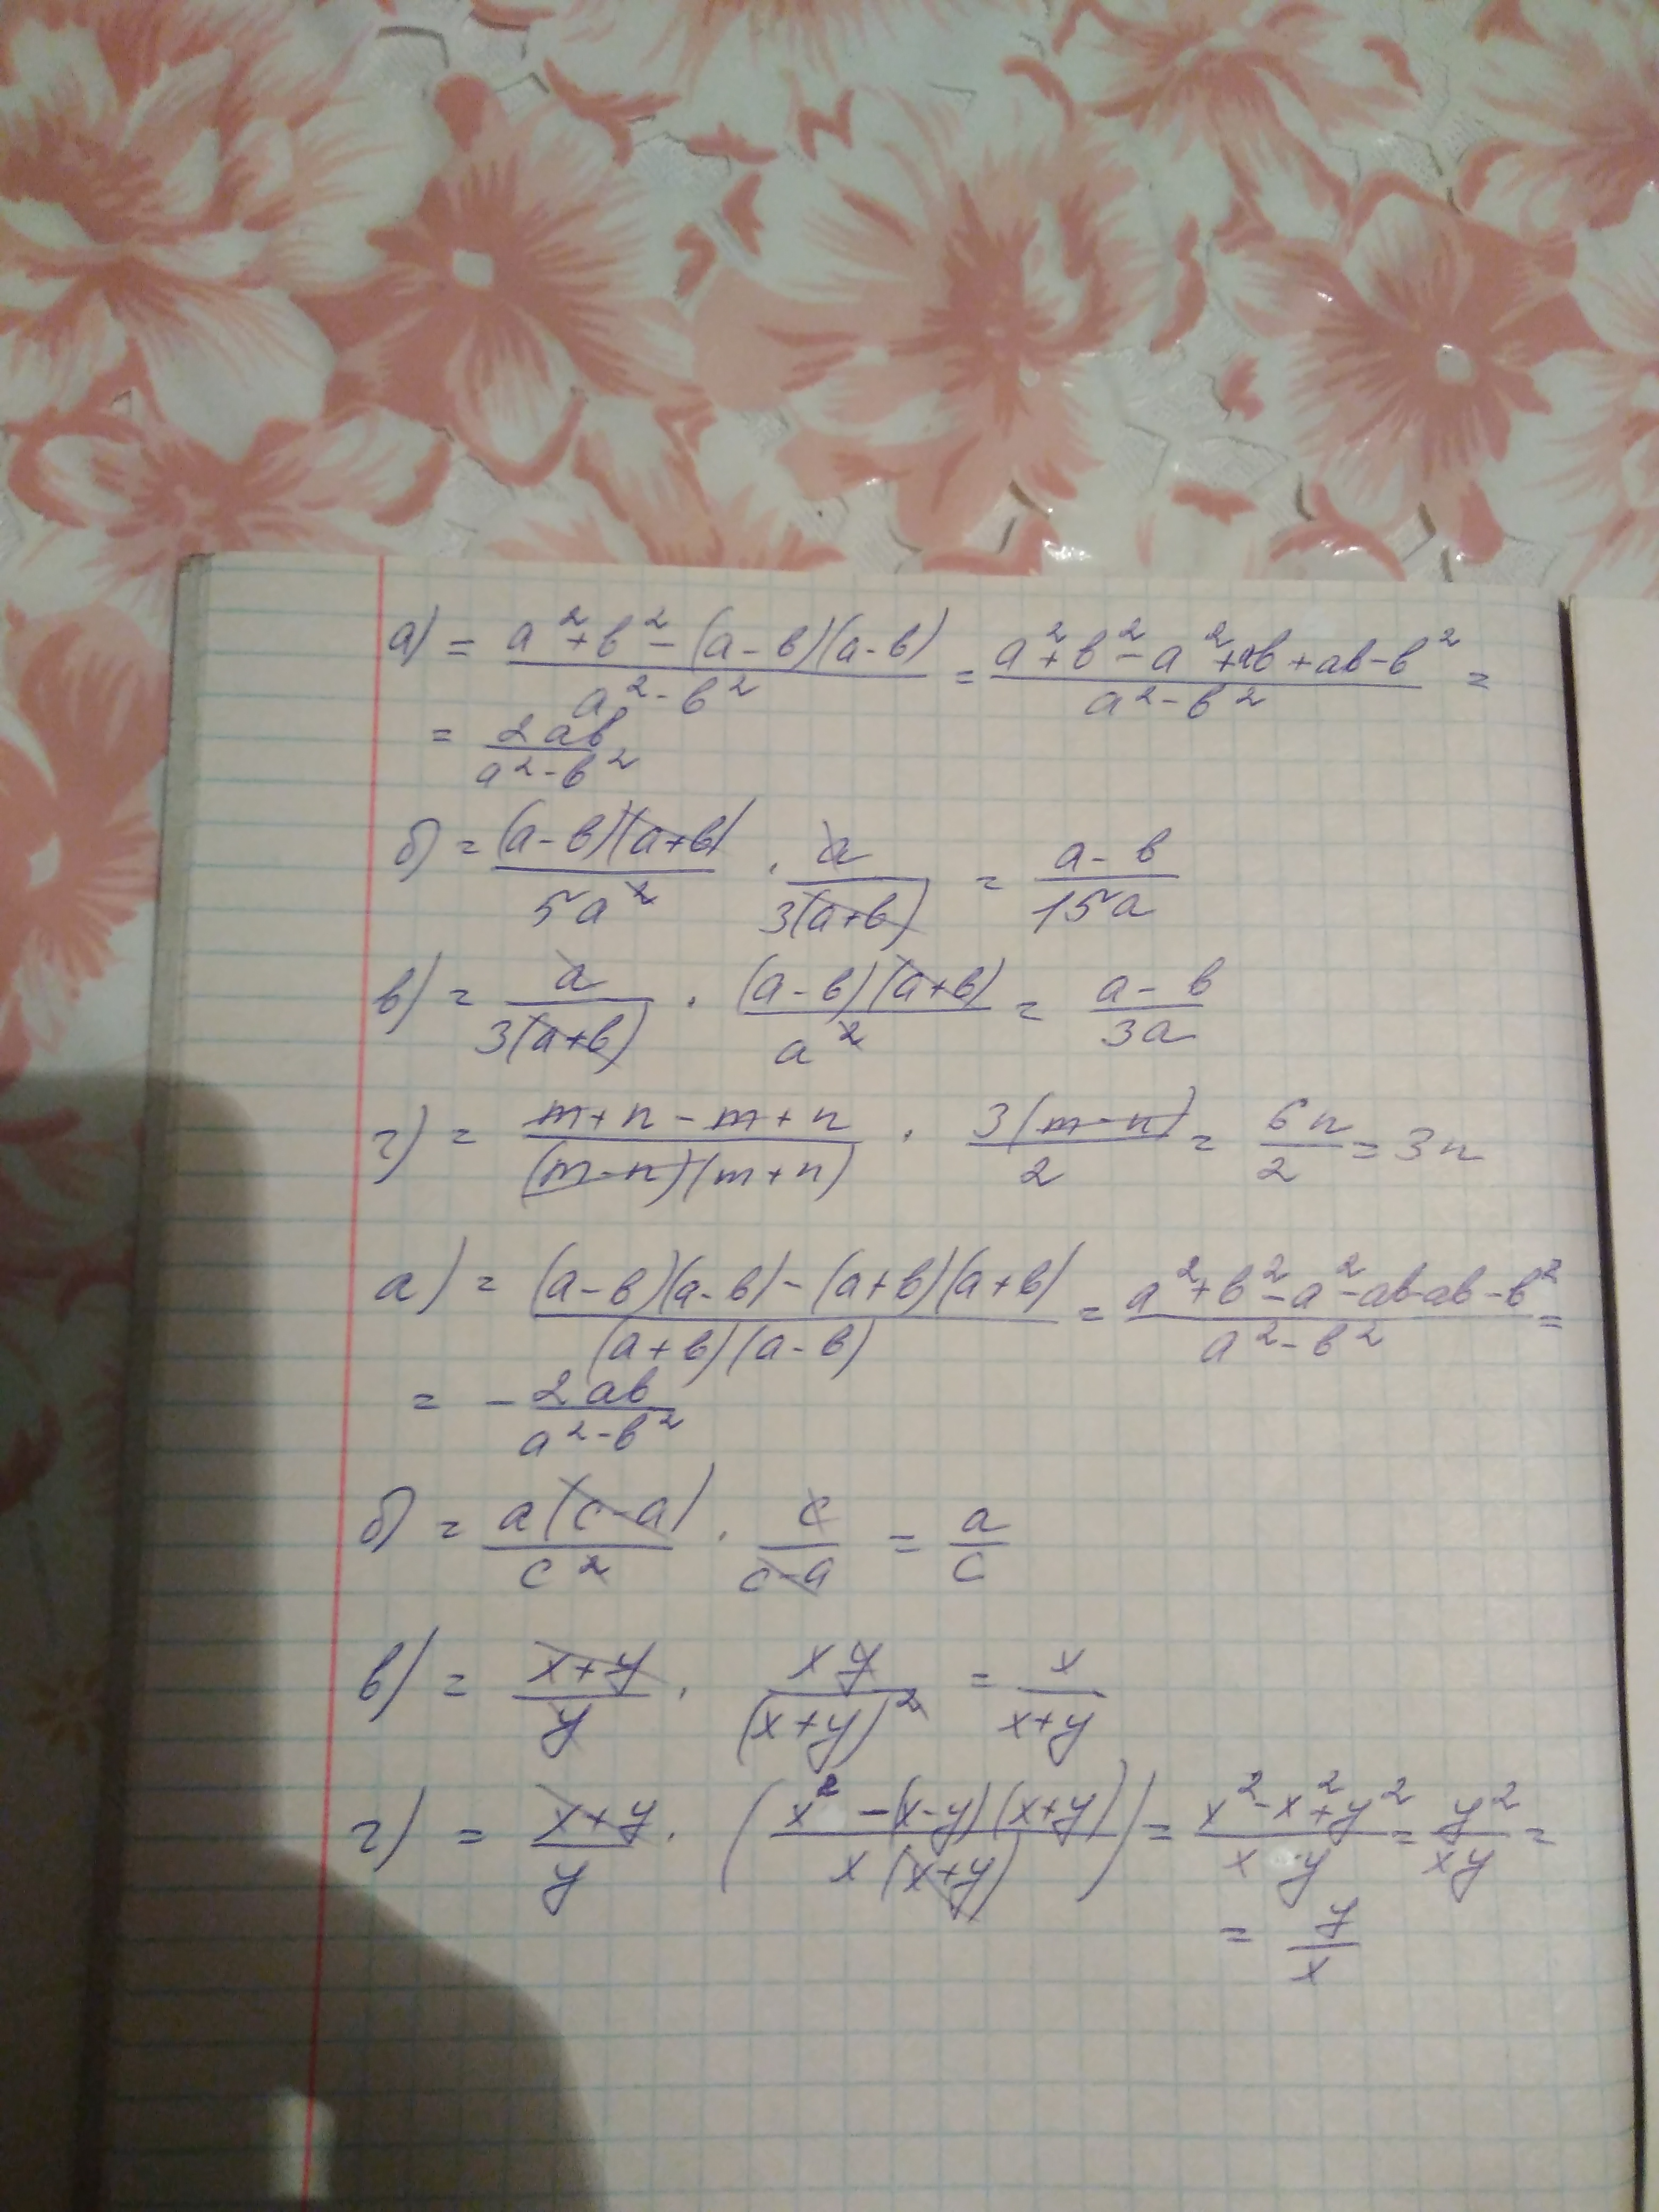 а) = (a²+b²-(a-b)(a-b))/(a²-b²) = (a²+b²-a²+ab+ab-b²)/(a²-b²) =
= 2ab/(a²-b²)
б) = (a-b)(a+b)/5a² · a/3(a+b) = (a-b)/15a
в) = a/3(a+b) · (a-b)(a+b)/a² = (a-b)/3a
г) = (m+n-m+n)/(m-n)(m+n) · 3(m-n)/2 = 6n/2 = 3n
а) = ((a-b)(a-b)-(a+b)(a+b))/(a+b)(a-b) = (a²+b²-a²-ab-ab-b²)/(a²-b²) =
= -2ab/(a²-b²)
б) = a(c-a)/c² · c/(c-a) = a/c
в) = (x+y)/y · xy/(x+y)² = x/(x+y)
г) = (x+y)/y · ((x²-(x-y)(x+y))/x(x+y)) = (x²-x²+y²)/xy = y²/xy =
= y/x